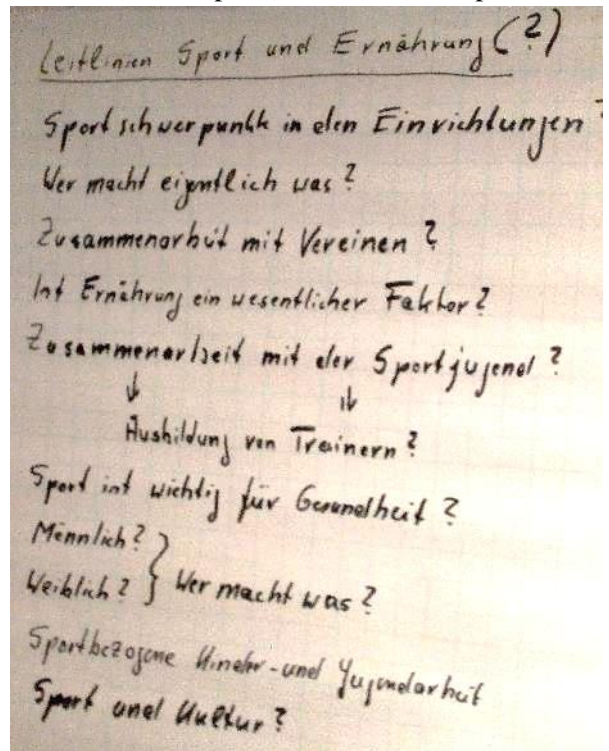 Leitlinien Sport und Ernährung (?)
Sportschwerpunkte in den Einrichtungen ?
Wer macht eigentlich was ?
Zusammenarbeit mit Vereinen ?
Ist Ernährung ein wesentlicher Faktor ?
Zusammenarbeit mit der Sportjugend ?
↓ ↓
Ausbildung von Trainern ?
Sport ist wichtig für Gesundheit ?
Männlich ?
Weiblich ? } Wer macht was ?
Sportbezogene Kinder- und Jugendarbeit
Sport und Kultur ?